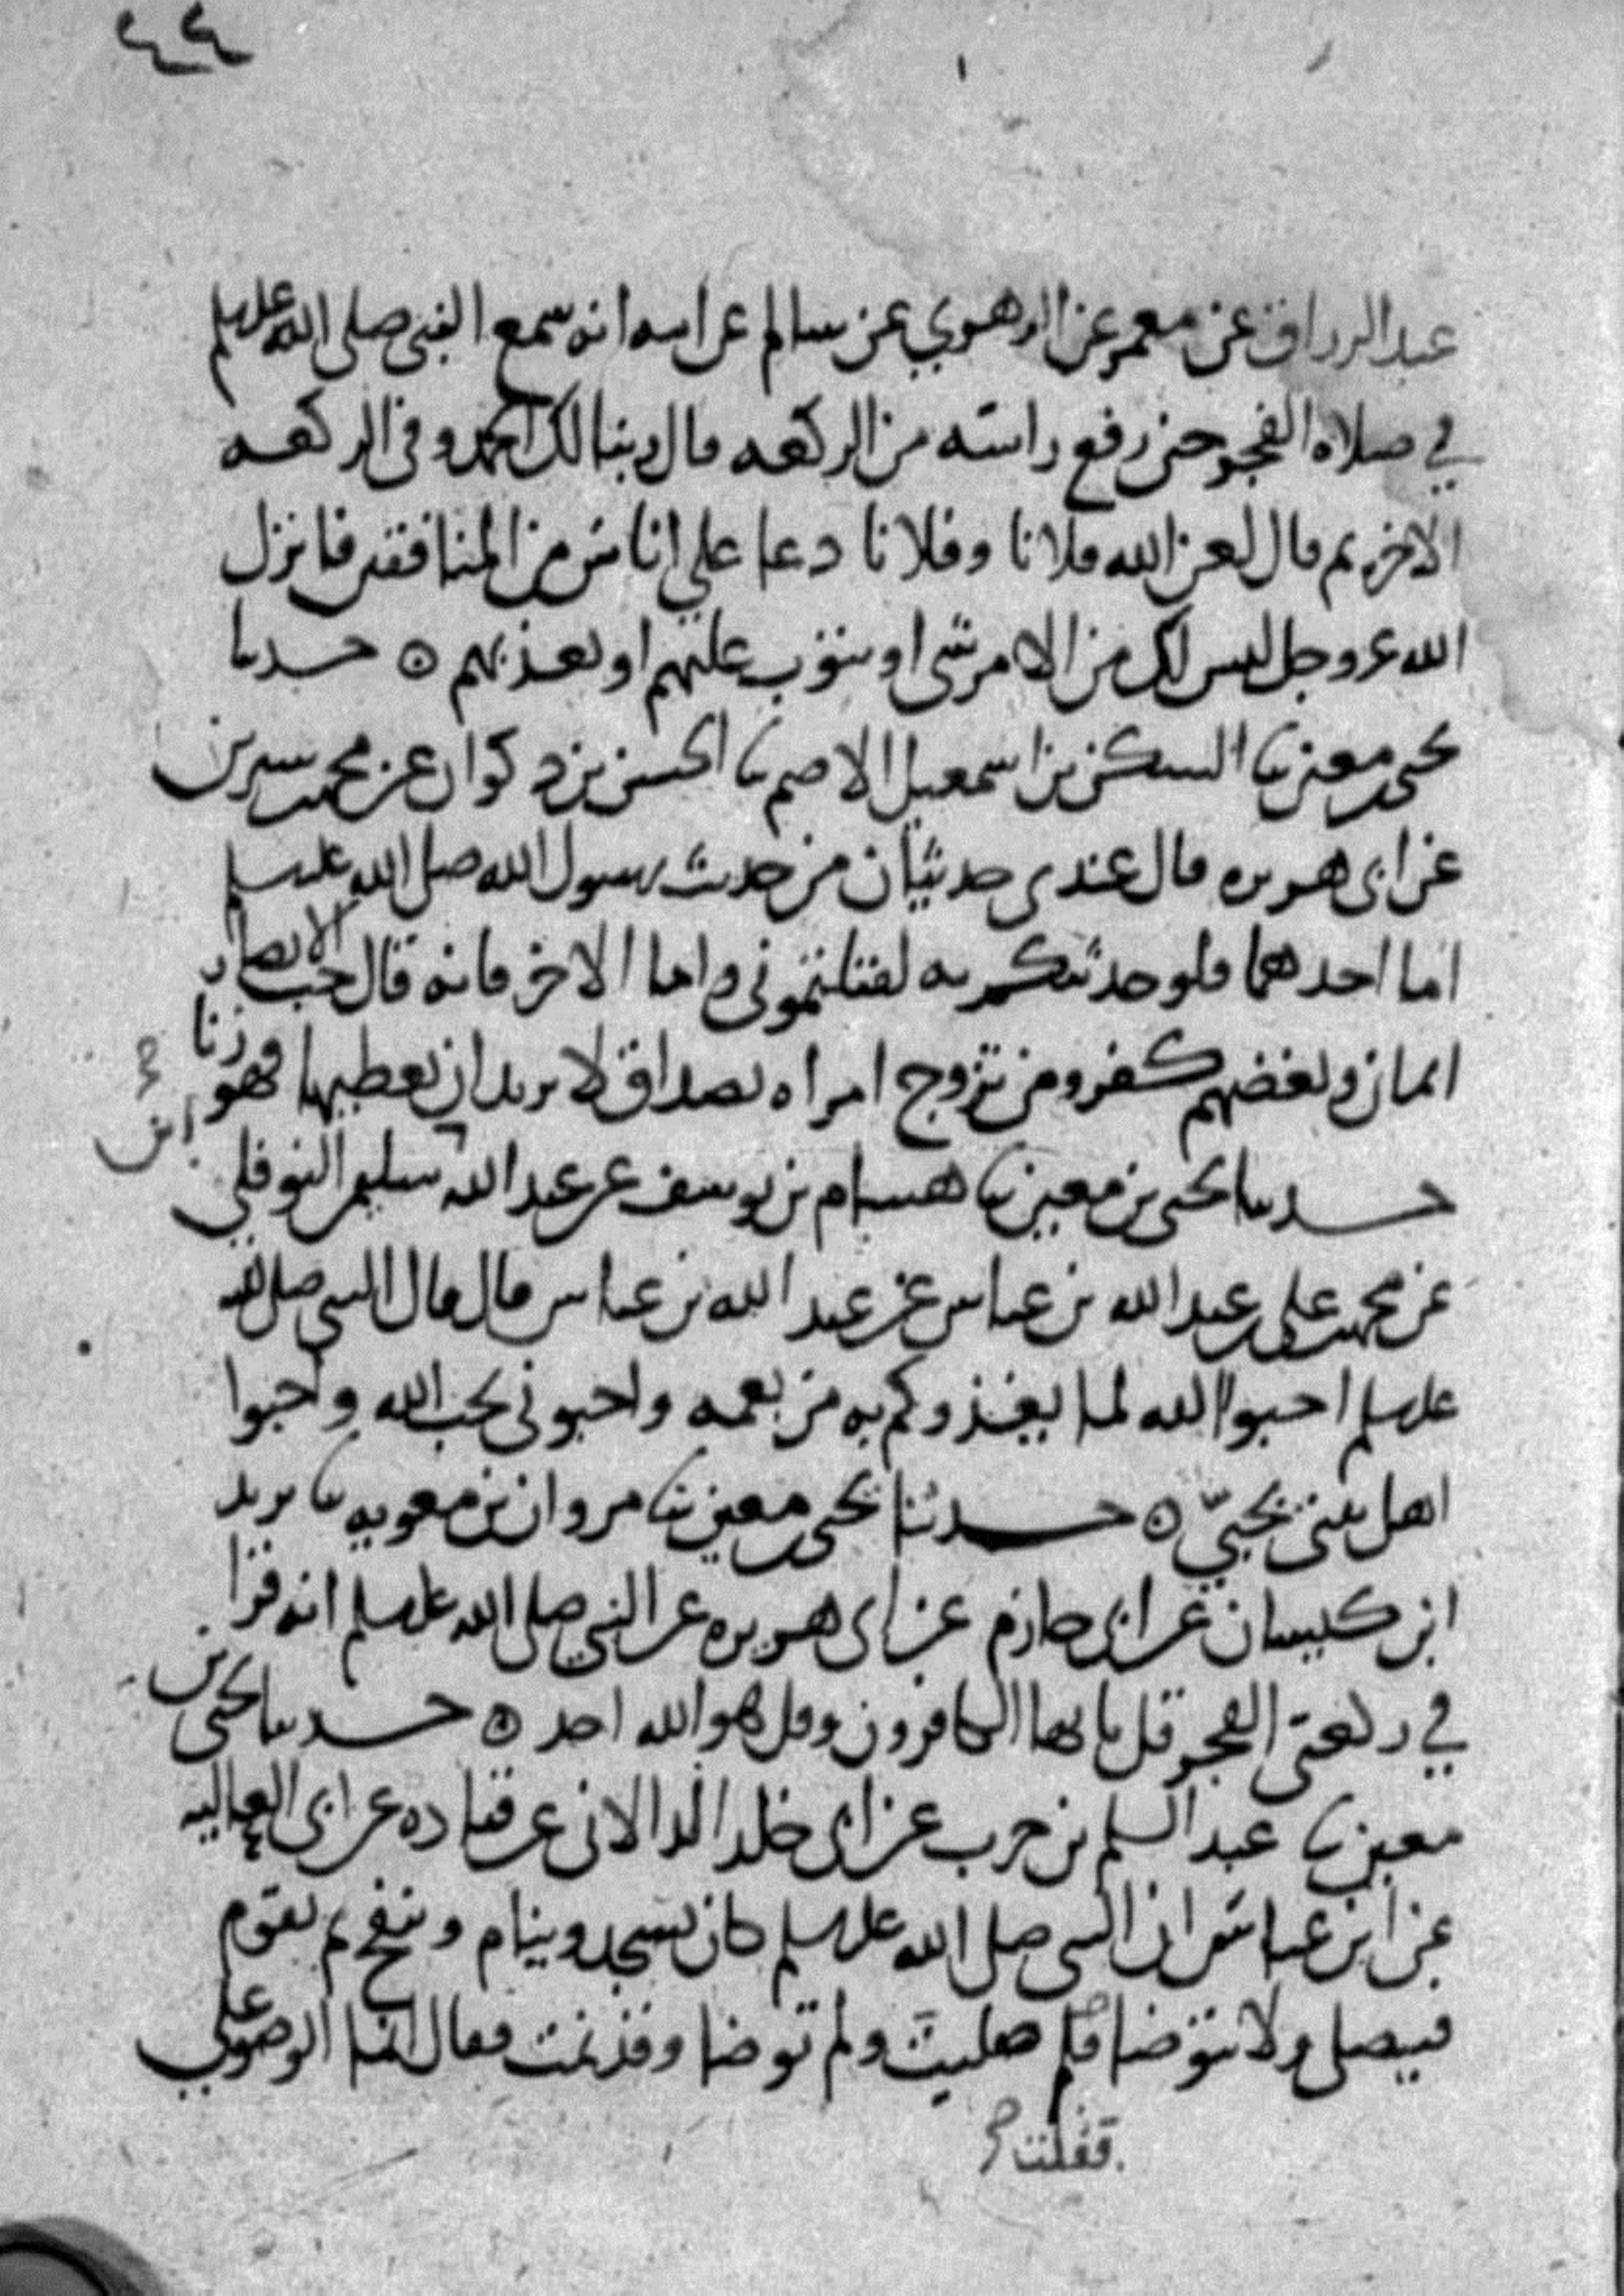 ٤٤
عبد الرزاق عن معمر عن الزهري عن سالم عن ابيه انه سمع النبي صلى الله عليه وسلم
في صلاه الفجر حين رفع راسه من الركعه قال ربنا لك الحمد وفي الركعه
الاخره ثم قال لعن الله فلانا وفلانا دعا علي اناس من المنافقين فانزل
الله عز وجل ليس لك من الامر شي او يتوب عليهم او يعذبهم ه حدثنا
يحيى بن معين ثنا السكن بن اسمعيل الاصم ثنا الحسن بن ذكوان عن محمد بن سيرين
عن ابي هريره قال عندي حديثان من حديث رسول الله صلى الله عليه وسلم
اما احدهما فلو حدثتكم به لقتلتموني واما الاخر فانه قال حب الانصار
ايمان وبغضهم كفر ومن تزوج امراه بصداق لا يريد ان يعطيها فهو زنا
حدثنا يحيى بن معين ثنا هشام بن يوسف عن عبد الله سليمن النوفلي
ابن
عن محمد بن علي بن عبد الله بن عباس عن عبد الله بن عباس قال قال النبي صلى الله
عليه وسلم احبوا الله لما يغذوكم به من نعمه واحبوني بحب الله واحبوا
اهل بيتي بحبي ه حدثنا يحيى بن معين ثنا مروان بن معويه ثنا يزيد
ابن كيسان عن ابي حازم عن ابي هريره عن النبي صلى الله عليه وسلم انه قرا
في ركعتي الفجر قل يا ايها الكافرون وقل هو الله احد ه حدثنا يحيى بن
معين ثنا عبد السلم بن حرب عن ابي خلد الدالاني عن قتاده عن ابي العاليه
عن ابن عباس ان النبي صلى الله عليه وسلم كان يسجد وينام وينفخ ثم يقوم
فيصلي ولا يتوضا صليت ولم توضا وقد نمت فقال انما الوضو علي
فقلت